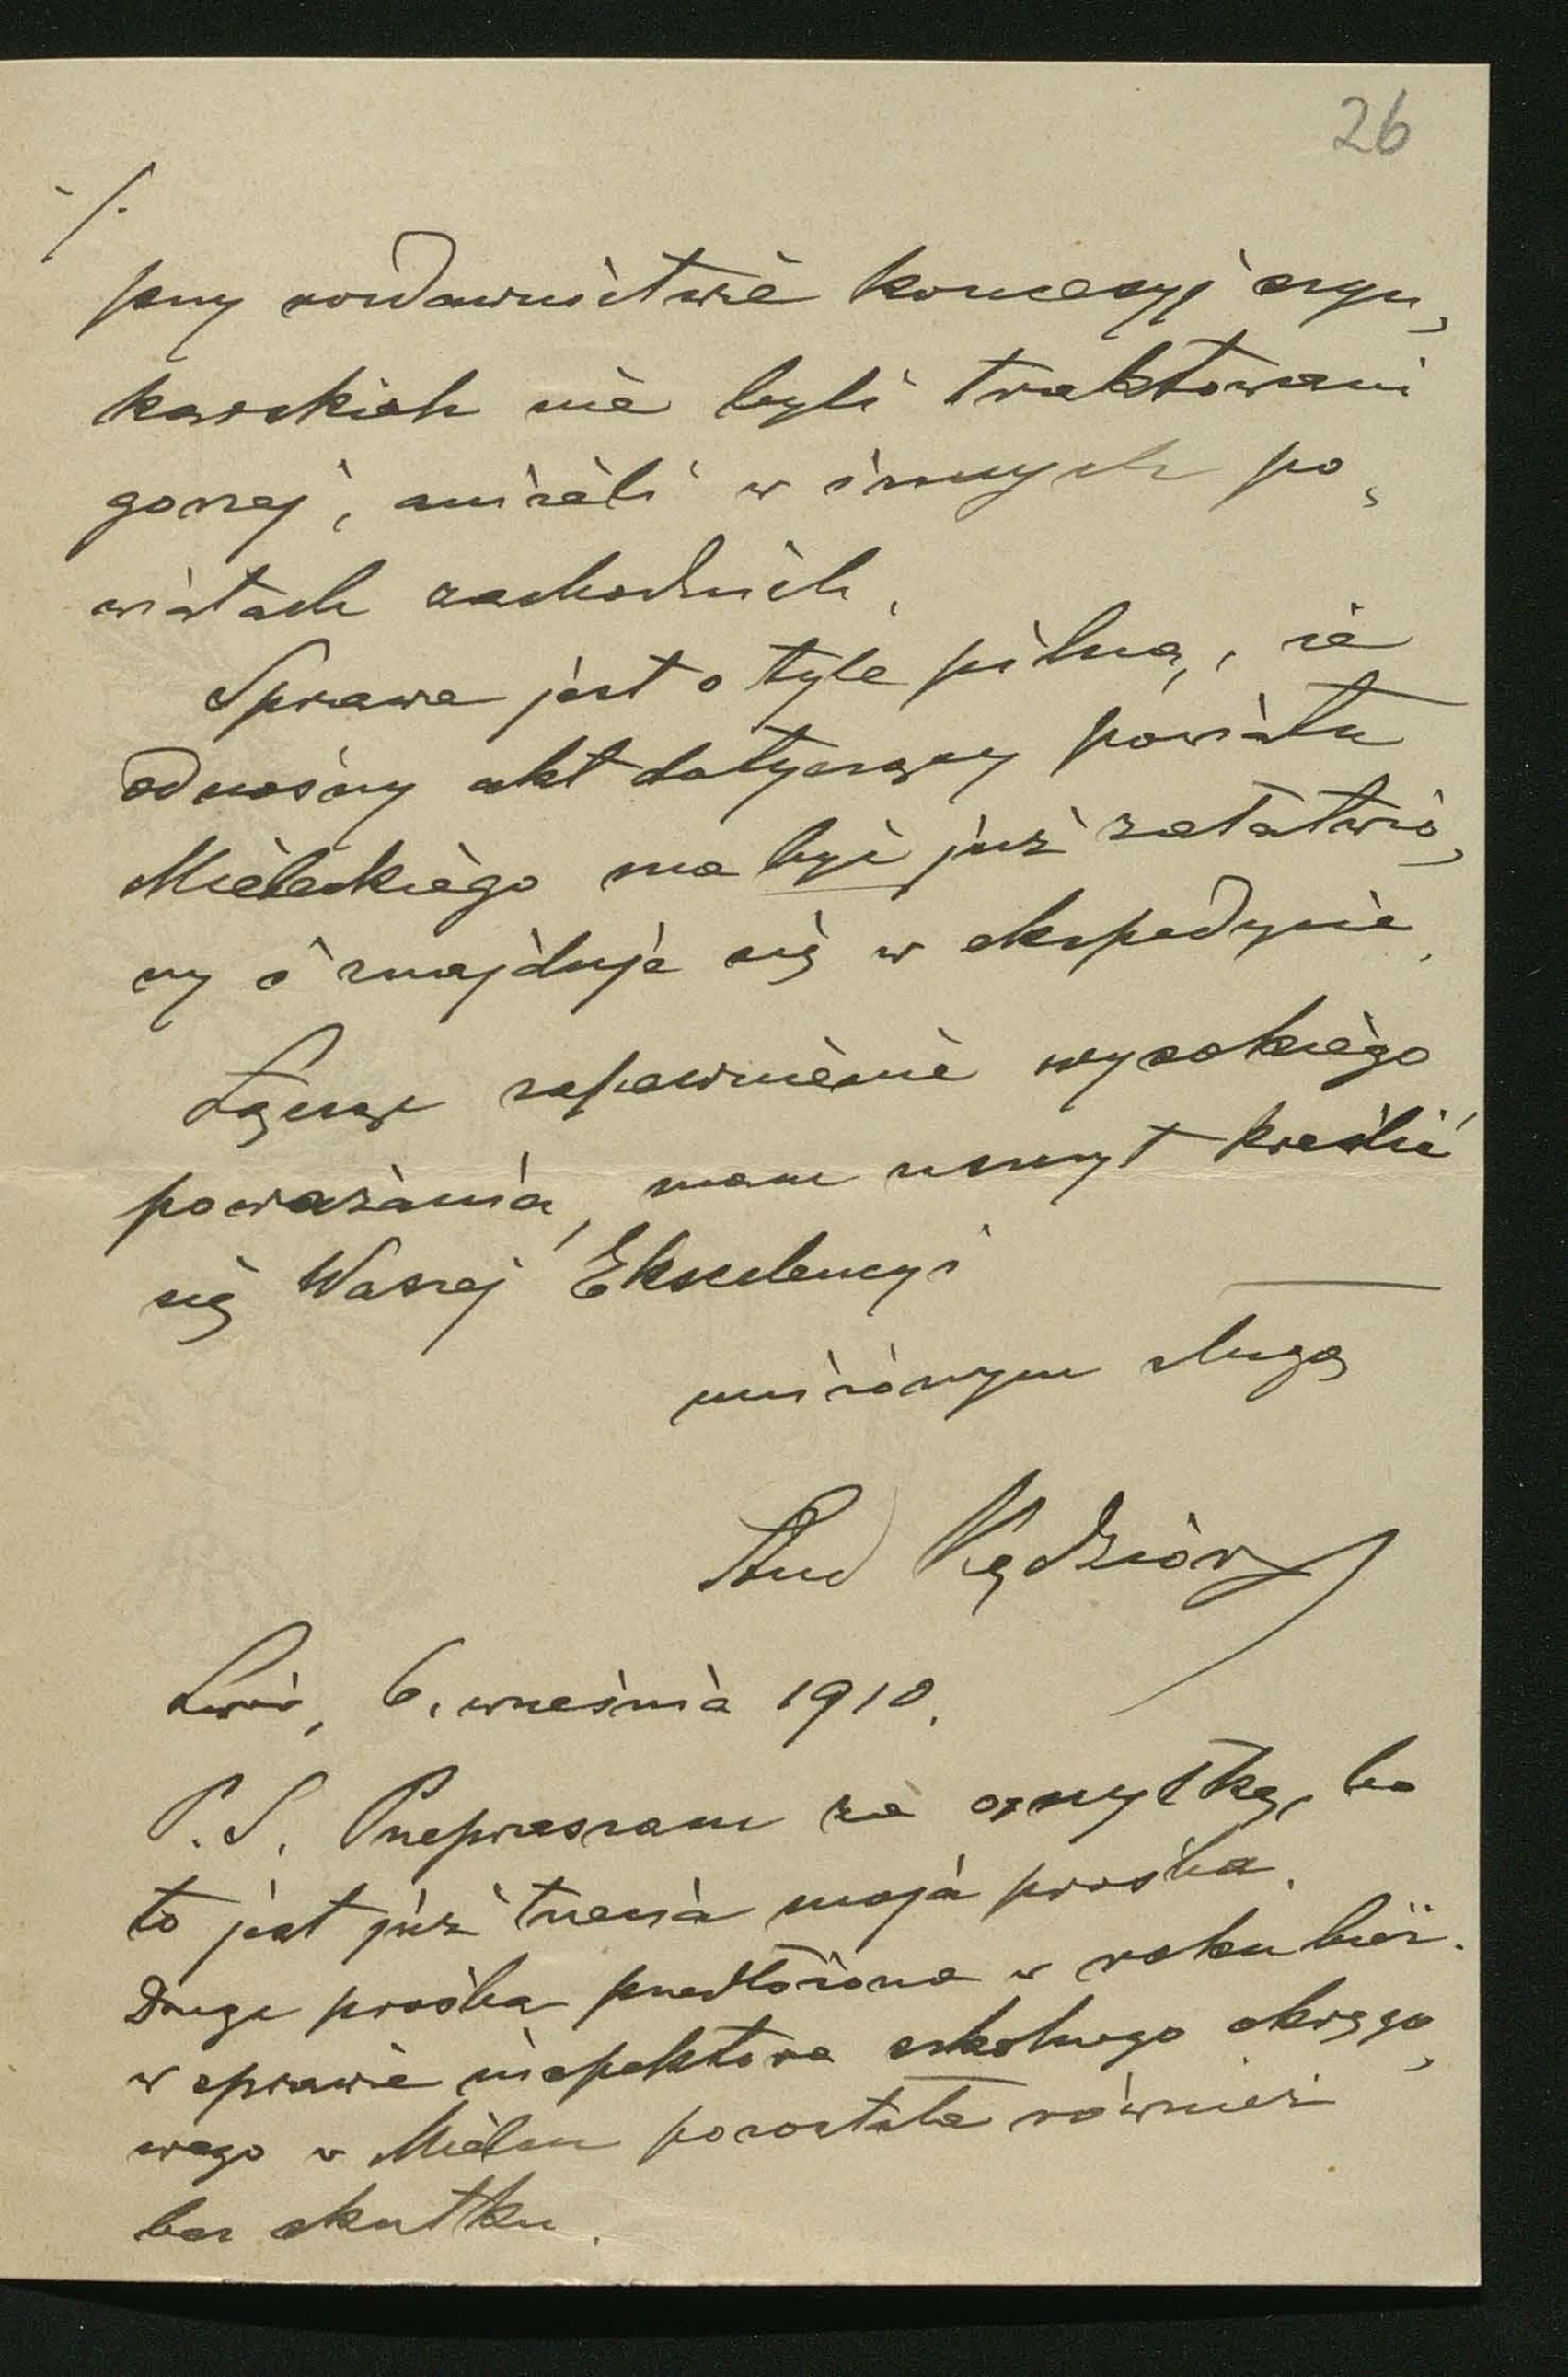 26
./.
przy rozdawnictwie koncesyj szyn,
karskich nie byli traktowani
gorzej, aniżeli w innych po,
wiatach zachodnich.
Sprawa jest o tyle pilną, że
odnośny akt dotyczący powiatu
Mieleckiego ma być już załatwio,
ny i znajduje się w ekspedycie.
Łącząc zapewnienie wysokiego
poważania, mam zaszczyt kreślić
się Waszej Ekscelencyi
uniżonym sługą
And Kędzior
Lwów, 6. września 1910.
P. S. Przepraszam za omyłkę, bo
to jest już trzecia moja prośba.
Druga prośba przedłożona w roku bież.
w sprawie inspektora szkolnego okręgo,
wego w Mielcu pozostała również
bez skutku.